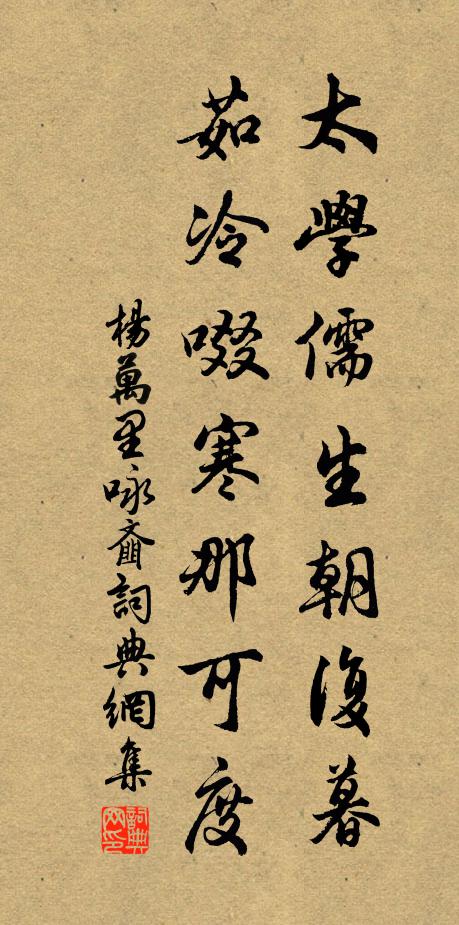 太學儒生朝復暮
茹冷啜寒那可度
楊萬里咏齑詞典網集
詞典网印